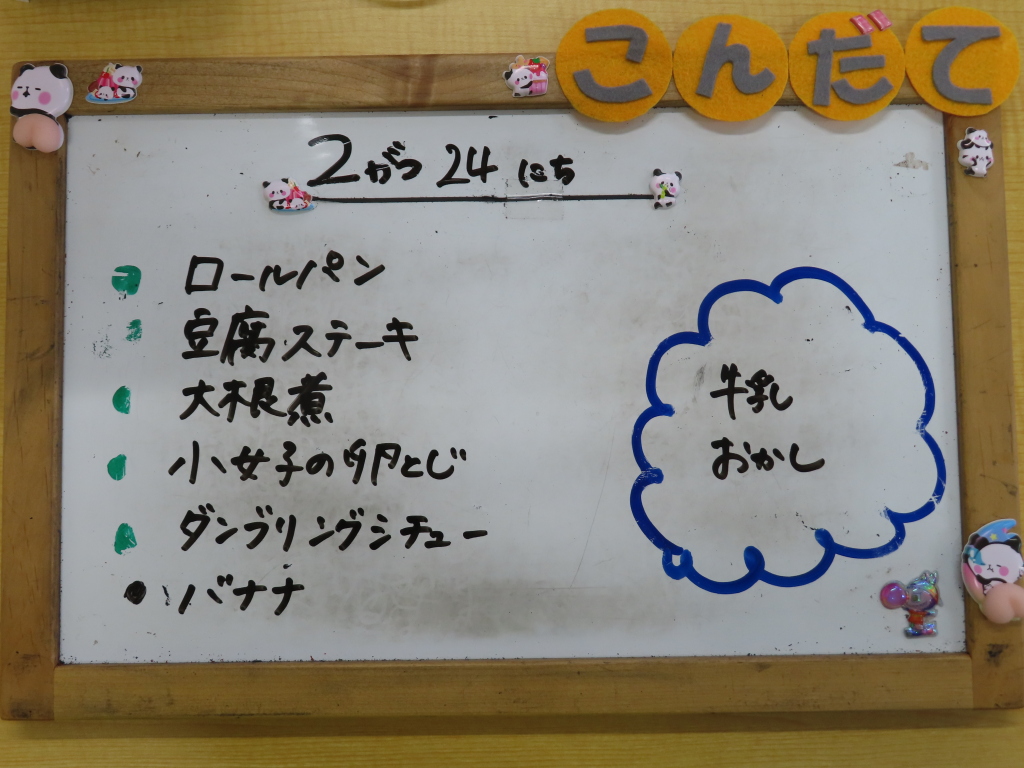 こんだて
2がつ 24 にち
ロールパン
豆腐ステーキ
大根煮
小女子の卵とじ
ダンブリングシチュー
バナナ
牛乳
おかし